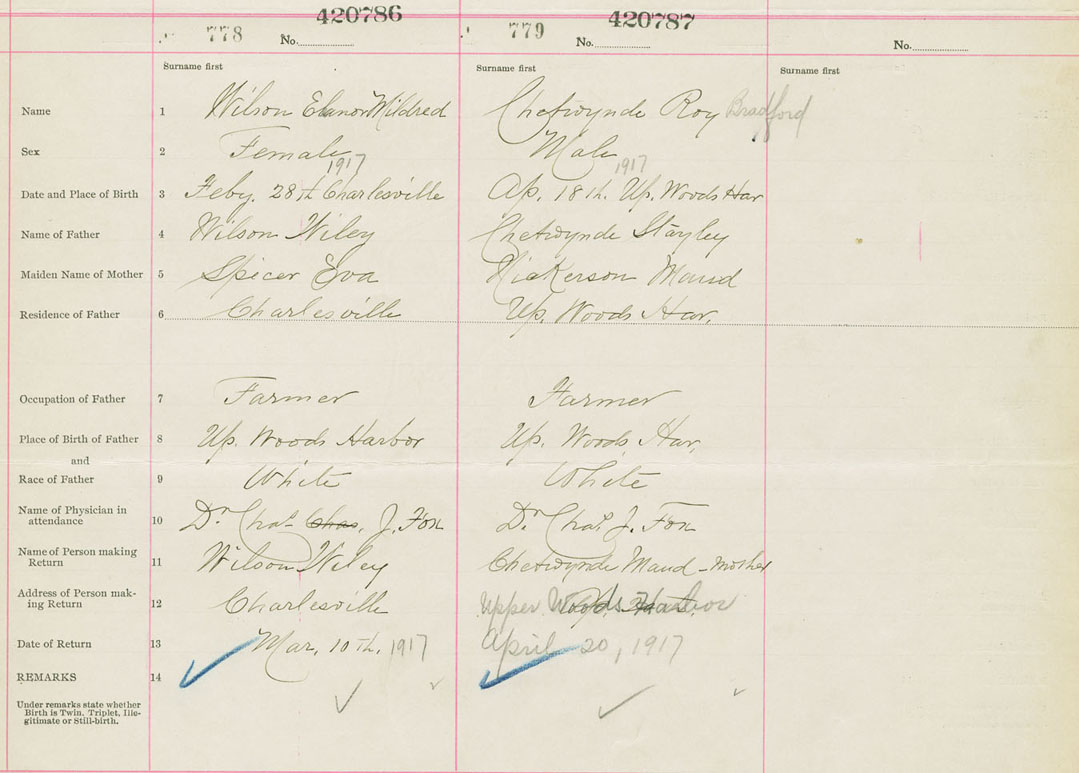 420786 420787
778 No. 779 No. No.
Surname first Surname first Surname first
Name 1 Wilson Elanor Mildred Chetwynde Roy Bradford
Sex 2 Female Male
1917 1917
Date and Place of Birth 3 Feby. 28th Charlesville Ap. 18th. Up. Woods Har
Name of Father 4 Wilson Wiley Chetwynde Stayley
Maiden Name of Mother 5 Spicer Eva Nickerson Maud
Residence of Father 6 Charlesville Up. Woods Har.
Occupation of Father 7 Farmer Farmer
Place of Birth of Father 8 Up. Woods Harbor Up. Woods Har.
and
Race of Father 9 White White
Name of Physician in
attendance 10 Dr. Chas. Chas. J. Fox Dr. Chas. J. Fox
Name of Person making
Return 11 Wilson Wiley Chetwynde Maud - Mother
Address of Person mak-
ing Return 12 Charlesville Upper Woods Harbor
Date of Return 13 Mar. 10th. 1917 April 20, 1917
REMARKS 14
Under remarks state whether
Birth is Twin, Triplet, Ille-
gitimate or Still-birth.